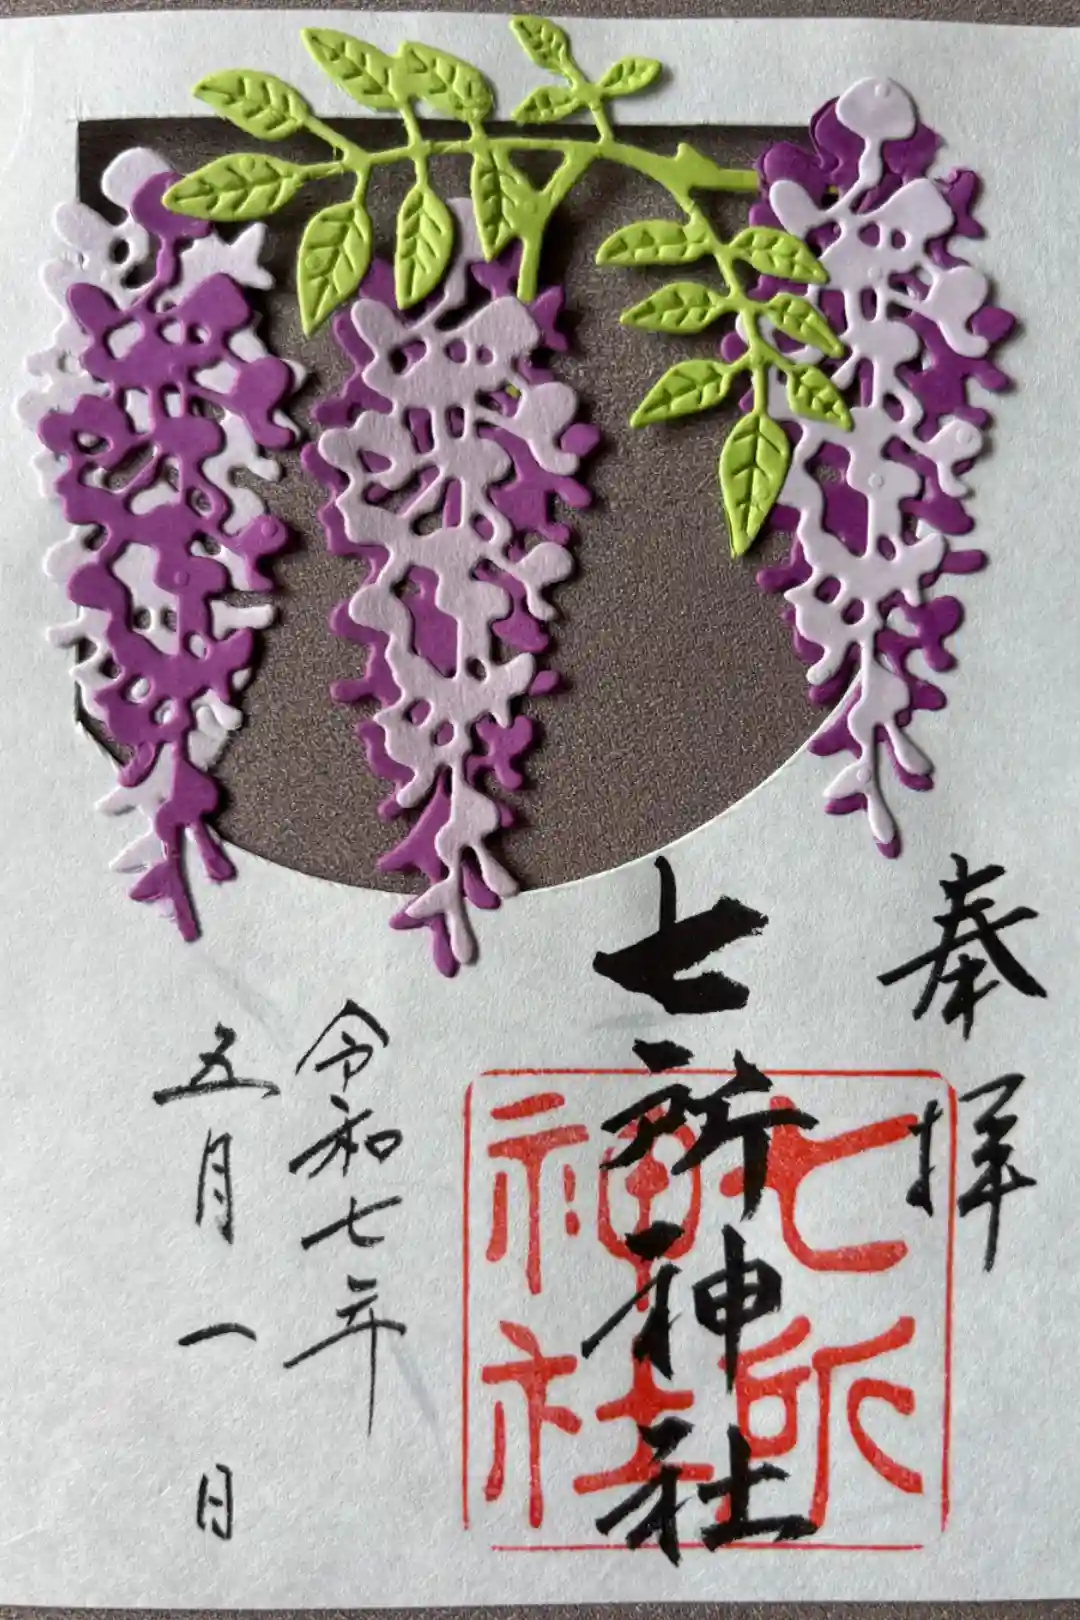 奉拝
七所神社
七所神社
令和七年
五月一日